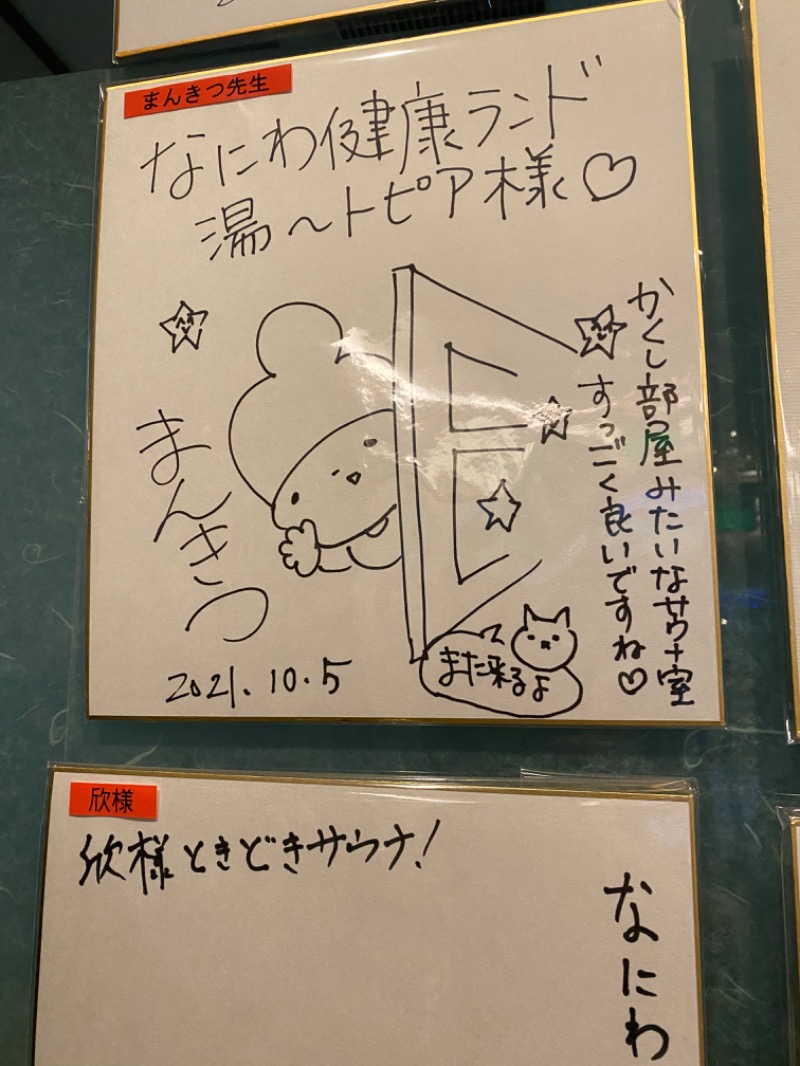 まんきつ先生
なにわ健康ランド
湯〜トピア様♡
かくし部屋みたいなサウナ室
すっごく良いですね♡
まんきつ
また来るよ
2021.10.5
欣様
欣様ときどきサウナ!
なにわ